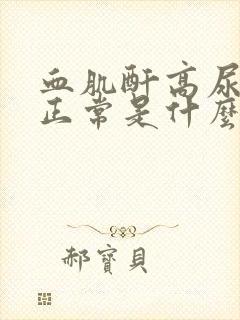 血肌酐高尿
正常是什麼
郝寶貝